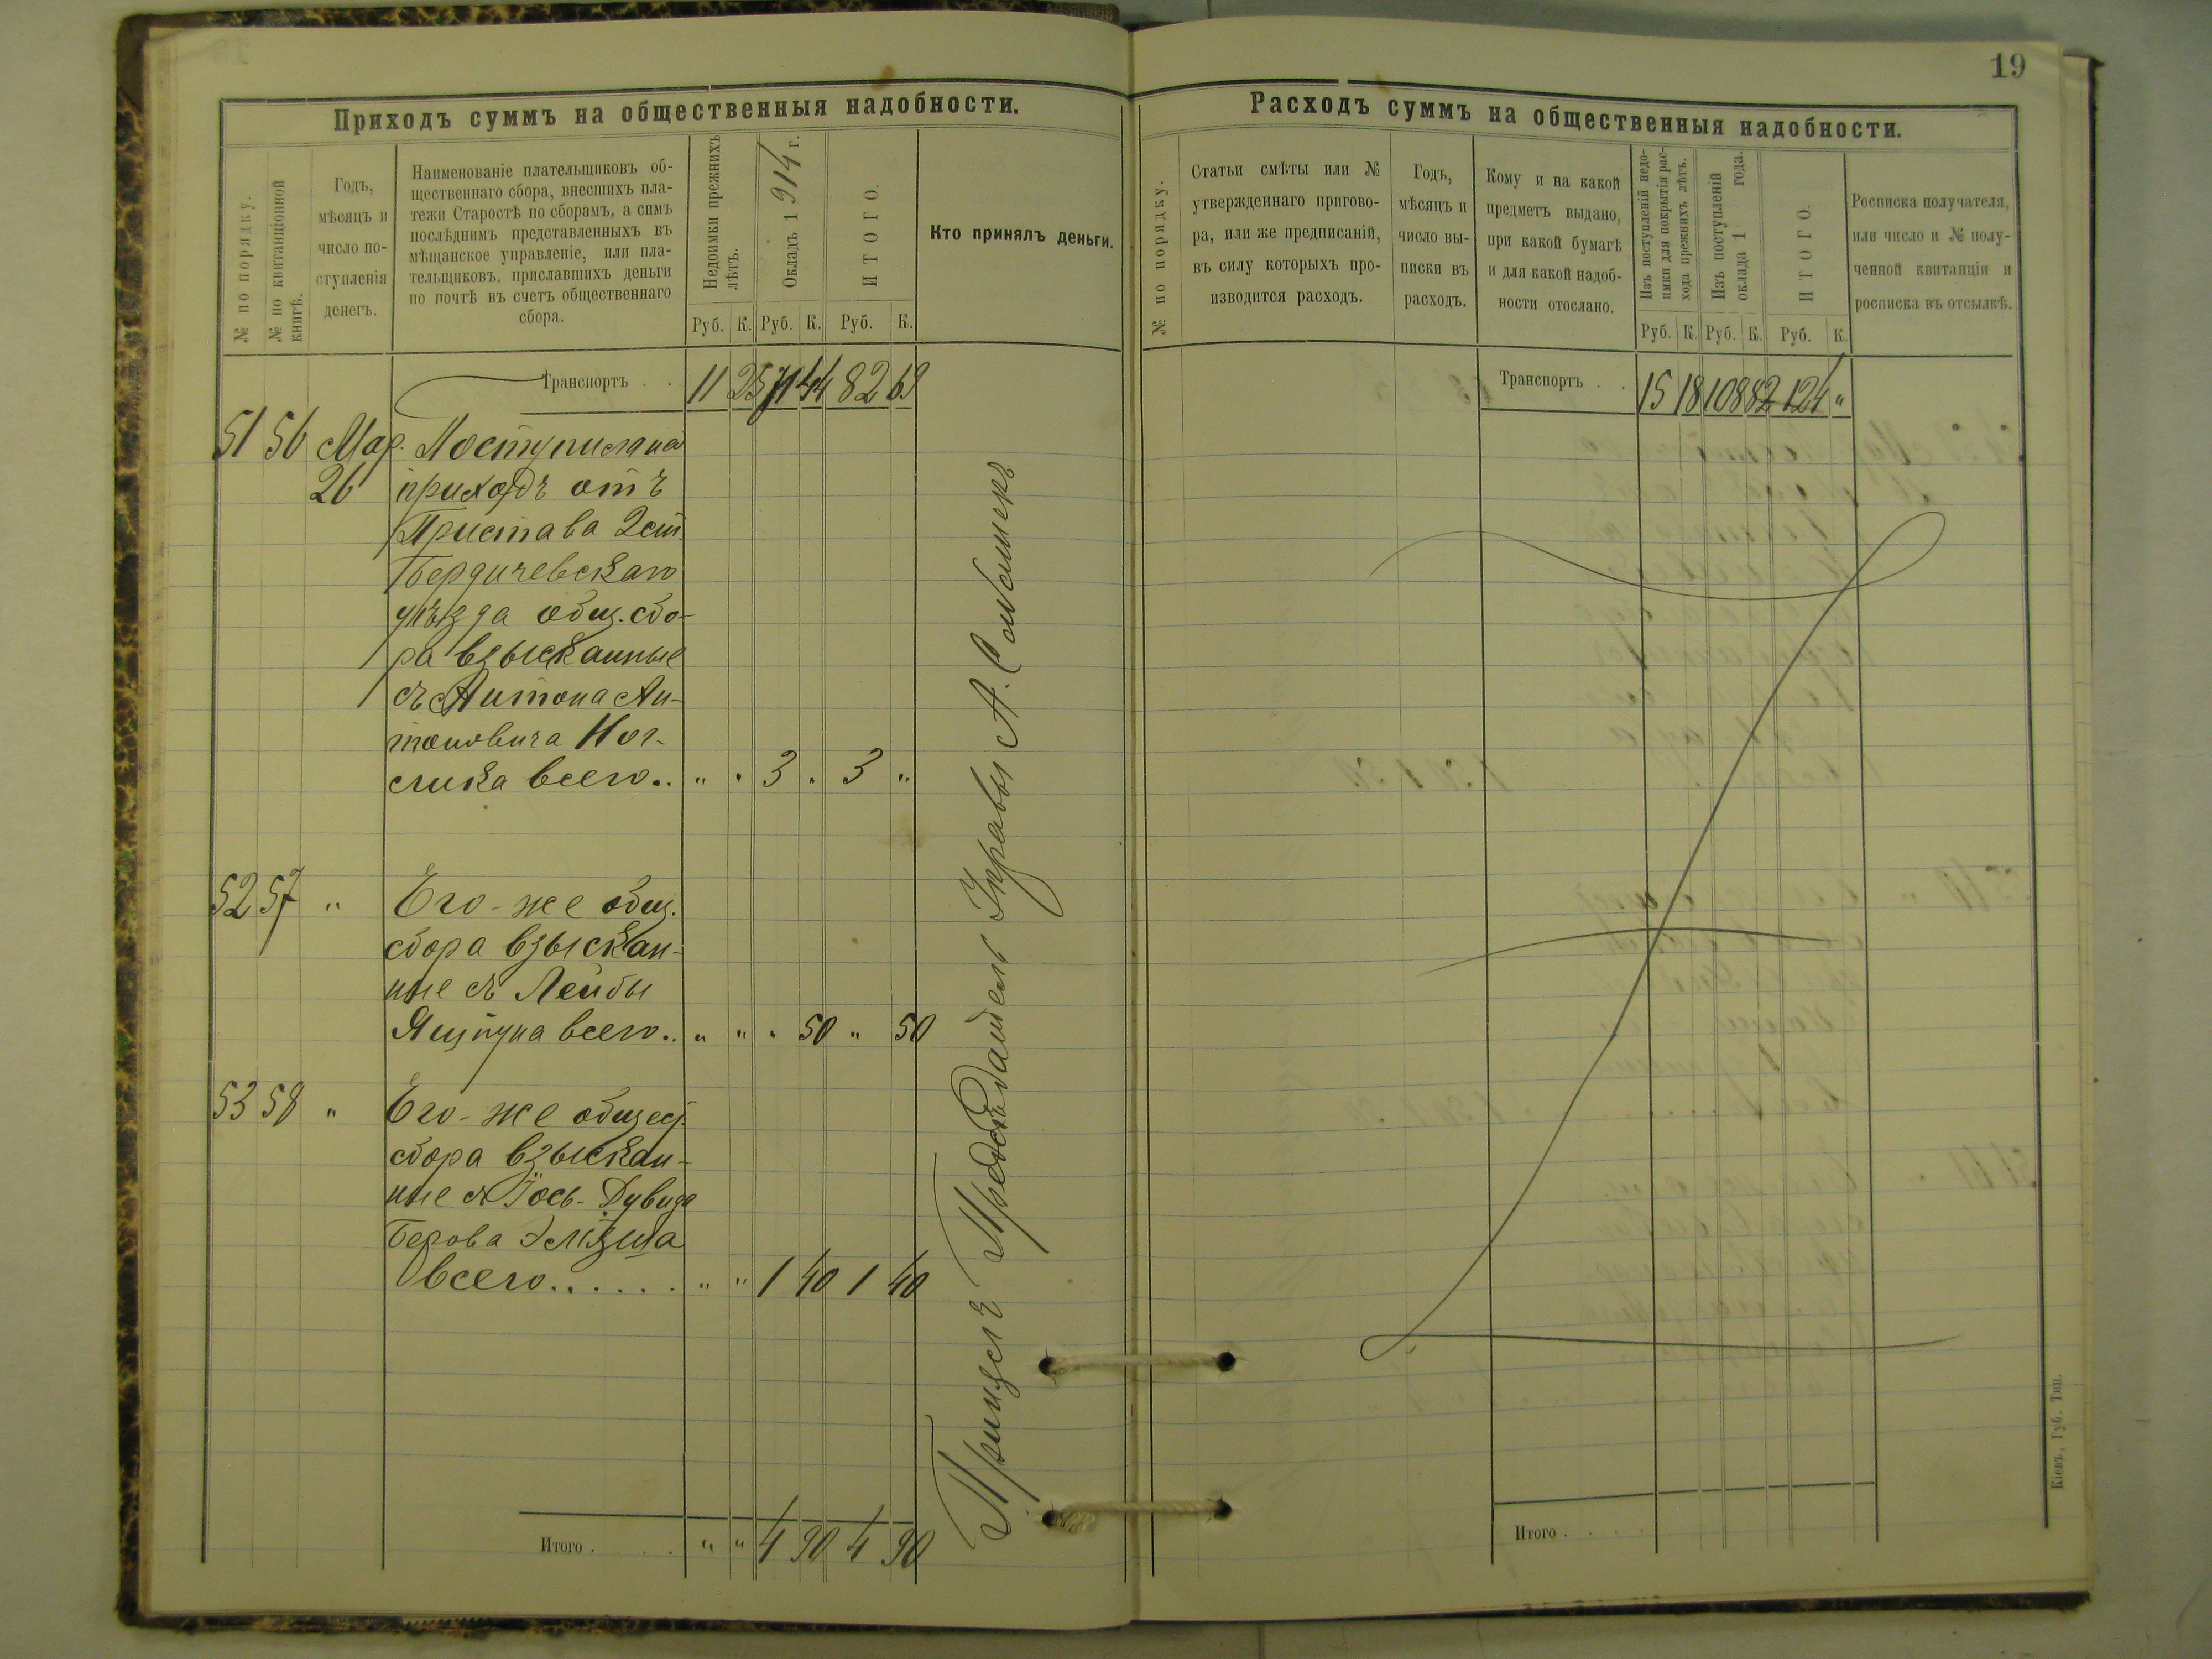 19
Приходъ суммъ на общественныя надобности.
№ по порядку.
№ по квитанціонной
книгѣ.
Годъ,
мѣсяцъ и
число по-
ступленія
денегъ.
Наименованіе плательщиковъ об-
щественнаго сбора, внесшихъ пла-
тежи Старостѣ по сборамъ, а симъ
послѣднимъ представленныхъ въ
мѣщанское управленіе, или пла-
тельщиковъ, приславшихъ деньги
по почтѣ въ счетъ общественнаго
сбора.
Недоимки прежнихъ
лѣтъ.
Окладъ 1914 г.
ИТОГО.
Кто принялъ деньги.
Руб. К. Руб. К. Руб. К.
Транспортъ . . 11 25 71 44 82 69
51 56 Мар. Поступило на
26 приходъ отъ
Пристава 2 ст.
Бердичевскаго
уѣзда общ. сбо-
ра взысканные
съ Антона Ан-
тоновича
всего.. „ „ 3 „ 3 „
52 57 „ Его-же общ.
сбора взыскан-
ные съ Лейбы
всего.. „ „ „ 50 „ 50
53 58 „ Его-же общест.
сбора взыскан-
ные съ Іось-Дувида
Берова
всего...... „ „ 1 40 1 40
Итого . . . . „ „ 4 90 4 90
Принялъ Предсѣдатель Управы А.
Расходъ суммъ на общественныя надобности.
№ по порядку.
Статьи смѣты или №
утвержденнаго пригово-
ра, или же предписаній,
въ силу которыхъ про-
изводится расходъ.
Годъ,
мѣсяцъ и
число вы-
писки въ
расходъ.
Кому и на какой
предметъ выдано,
при какой бумагѣ
и для какой надоб-
ности отослано.
Изъ поступленій недо-
имки для покрытія рас-
хода прежнихъ лѣтъ.
Изъ поступленій
оклада 1 года.
ИТОГО.
Росписка получателя,
или число и № полу-
ченной квитанціи и
росписка въ отсылкѣ.
Руб. К. Руб. К. Руб. К.
Транспортъ . . 15 18 108 82 124 „
Итого . . . .
Кіевъ, Губ. Тип.